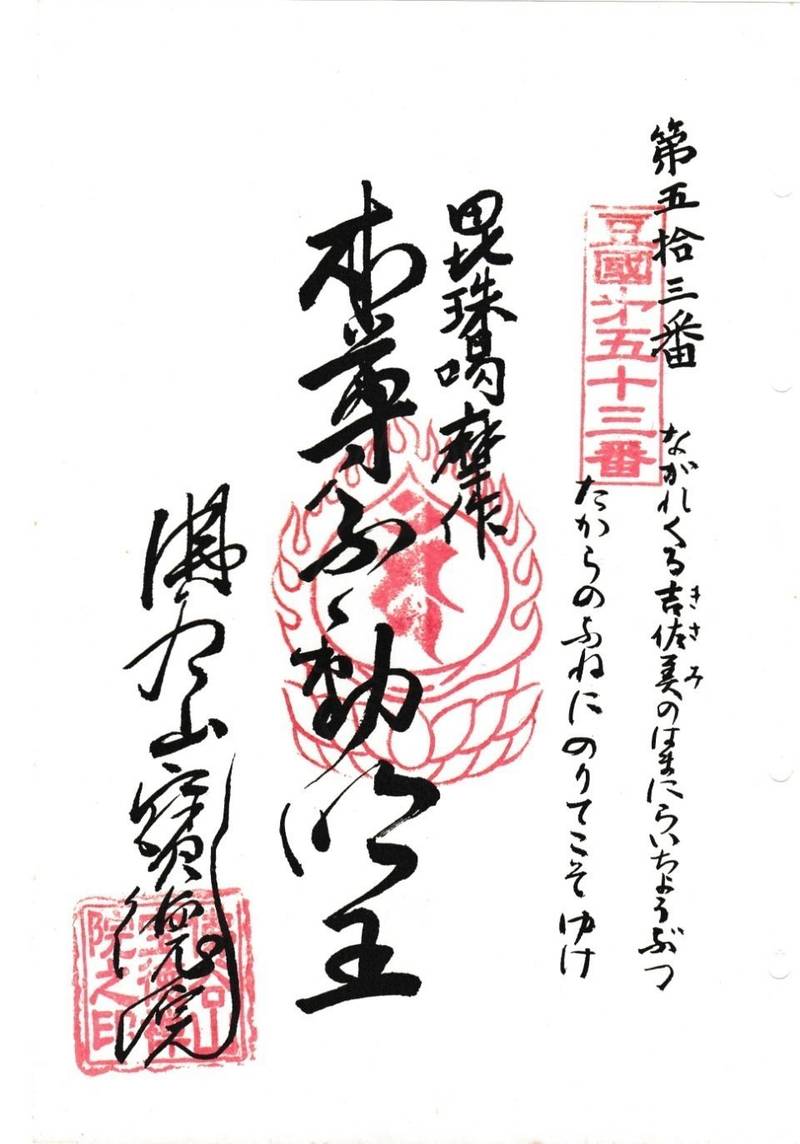 第五拾三番
豆國第五十三番
ながれくる吉佐美のはまにらいちようぶつ
きさみ
たからのふねにのりてこそゆけ
毘珠羯摩作
本尊不動明王
山寶徳院
院之印